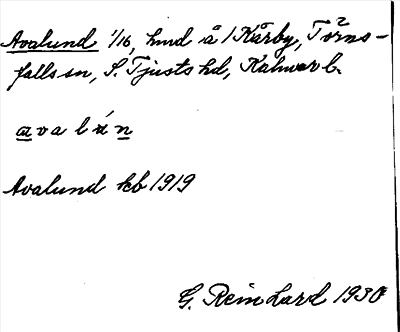 Avalund 1/16, hmd å 1 Kårby, Törns-
falls sn, S. Tjusts hd, Kalmar l.
avalún
Avalund kb 1919
G. Reinhard 1930